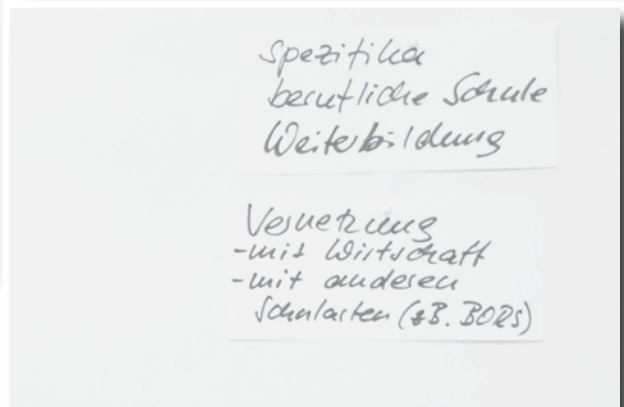 Spezifika
berufliche Schule
Weiterbildung
Vernetzung
- mit Wirtschaft
- mit anderen
Schularten (zB. BORS)